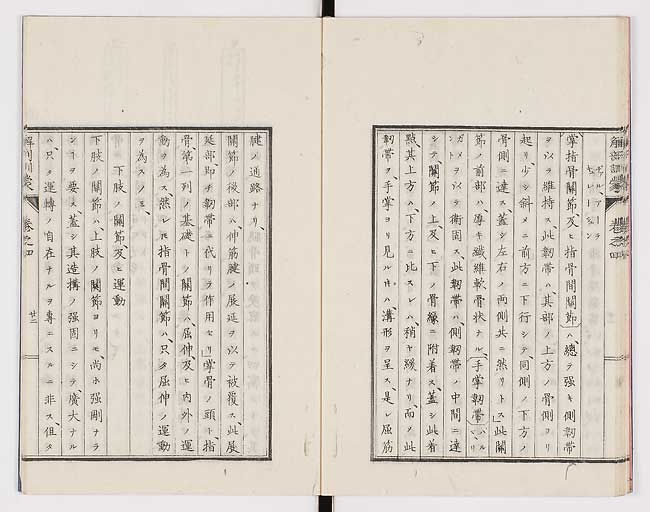 掌指骨關節、及ヒ指骨間關節ハ、總テ强キ側韌帶
ヲ以テ維持ス、此韌帶ハ、其部ノ上方ノ骨側ヨリ
起リ、少シ斜メニ前方ニ下行シテ同側ノ下方ノ
骨側ニ達ス、蓋シ左右ノ兩側共ニ然リトス、此關
節ノ前部ハ、厚キ纖維軟骨狀ナル、手掌韌帶
ヲ以テ衛固ス、此韌帶ハ、側韌帶ノ中間ニ達
シテ、關節ノ上及ヒ下ノ骨緣ニ附着ス、蓋シ此着
點其上方ハ、下方ニ比スレハ、稍ヤ緩ナリ、而ノ此
韌帶ヲ、手掌ヨリ見ル片ハ、溝形ヲ呈ス、是レ屈筋
腱ノ通路ナリ、
關節ノ後部ハ、伸筋腱ノ展延ヲ以テ被覆ス、此展
延部、即チ韌帶ニ代リテ作用セリ、掌骨ノ頭ト、指
骨第一列ノ基礎トノ關節ハ、屈伸、及ヒ內外ノ運
動ヲ為ス、然レ𪜈指骨間關節ハ、只タ屈伸ノ運動
ヲ為スノミ、
下肢ノ關節、及ヒ運動
下肢ノ關節ハ、上肢ノ關節ヨリモ、尚ホ强剛ナラ
ンヿヲ要ス、蓋シ其造搆ノ强固ニシテ、廣大ナル
ハ、只タ運轉ノ自在ナルヲ專ニスルニ非ス、但タ
卷之四
廿二